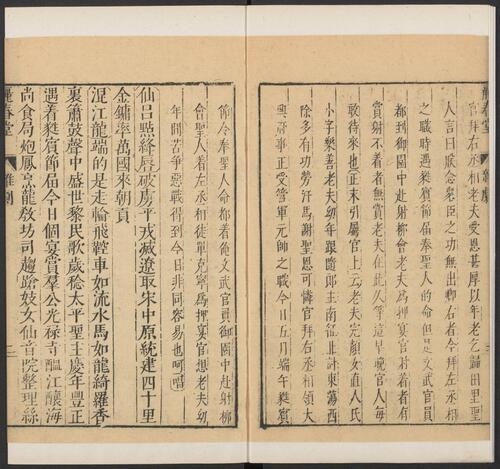 官拜右丞相老夫受恩甚厚以年老乞歸田里聖
人言曰朕念衆臣之功無出卿右者今拜左丞相
之職時遇蕤賓節届奉聖人的命但是文武官員
都到御園中赴射柳會老夫爲押宴官射着者有
賞射不着者無賞老夫在此久等這早晚官人每
敢待來也正末引屬官上云老夫完顔女直人氏
小字樂善老夫幼年跟隨郎主南征北討東蕩西
除多有功勞汗馬謝聖恩可憐官拜右丞相領大
興府事正受管軍元帥之職今日五月端午蕤賓
節令奉聖人命都着俺文武官員御園中赴射柳
會聖人着左丞相徒單克寧爲押宴官想老夫幼
年間苦爭惡戰得到今日非同容易也呵唱
仙呂點絳唇破虜平戎滅遼取宋中原統建四十里
金鏞率萬國來朝貢
混江龍端的是走輪飛鞚車如流水馬如龍綺羅香
裏簫鼓聲中盛世黎民歌歲稔太平聖主慶年豐正
遇着蕤賓節届今日個宴賞羣公光禄寺醞江釀海
尚食局炮鳳烹龍教坊司趨蹌妓女仙音院整理絲
麗春堂
雜劇
二